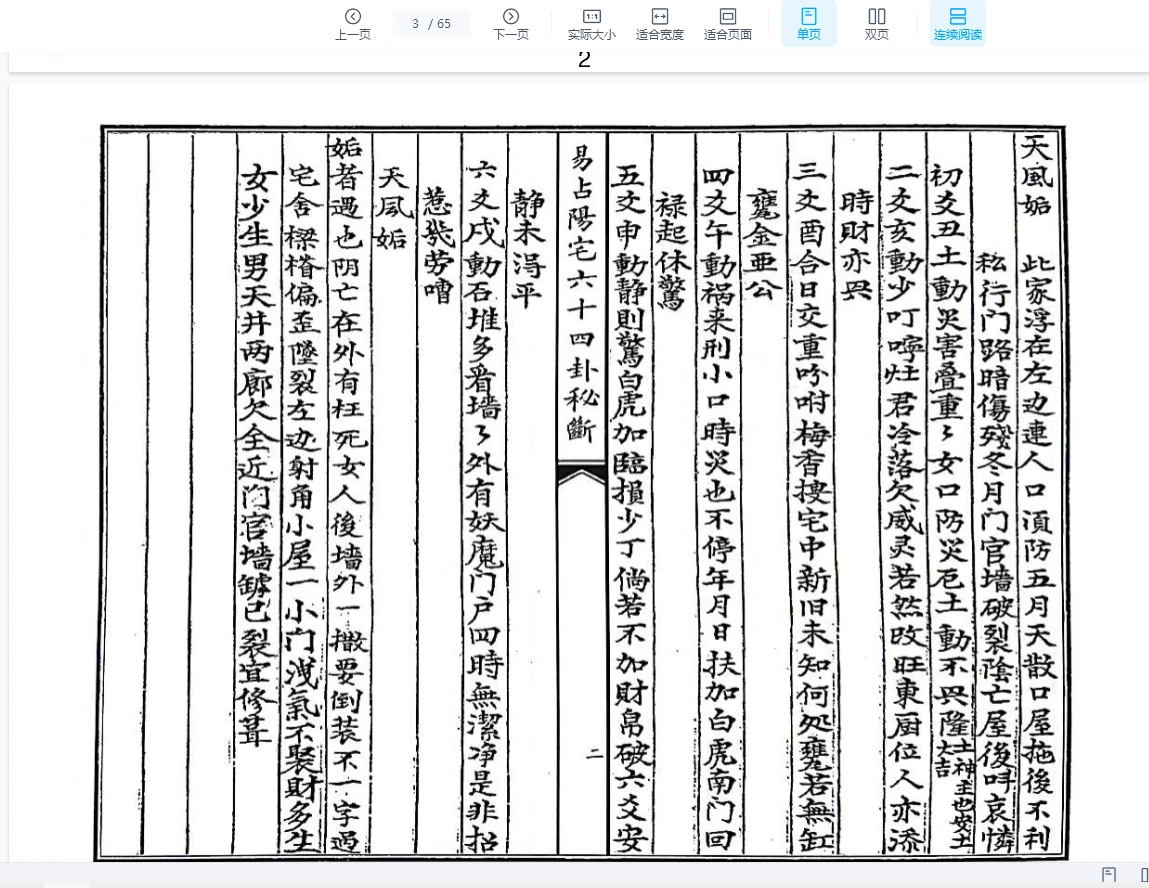 上一页
3 / 65
下一页
实际大小
适合宽度
适合页面
单页
双页
连续阅读
2
天風姤 此家浮在左边連人口湏防五月天散口屋拖後不利
私行门路暗傷殘冬月门官墙破裂陰亡屋後呌哀憐
初爻丑土動災害疊重〻女口防災厄土動不兴隆土神主也安土大吉
二爻亥動少叮嚀灶君冷落欠威灵若然改旺東厨位人亦添
時財亦兴
三爻酉合日交重吟咐梅香搜宅中新旧未知何处甕若無缸
甕金亜公
四爻午動祸来刑小口時災也不停年月日扶加白虎南门回
禄起休驚
五爻申動静則驚白虎加臨損少丁倘若不加財帛破六爻安
易占陽宅六十四卦秘斷
二
静未淂平
六爻戌動石堆多看墙〻外有妖魔门户四時無潔净是非招
惹嘵劳嘈
天風姤
姤者遇也阴亡在外有枉死女人後墙外一撒要倒装不一字過
宅舍樑楷偏歪墜裂左边射角小屋一小门洩氣不聚財多生
女少生男天井两廊欠全近门官墙罅已裂宜修葺